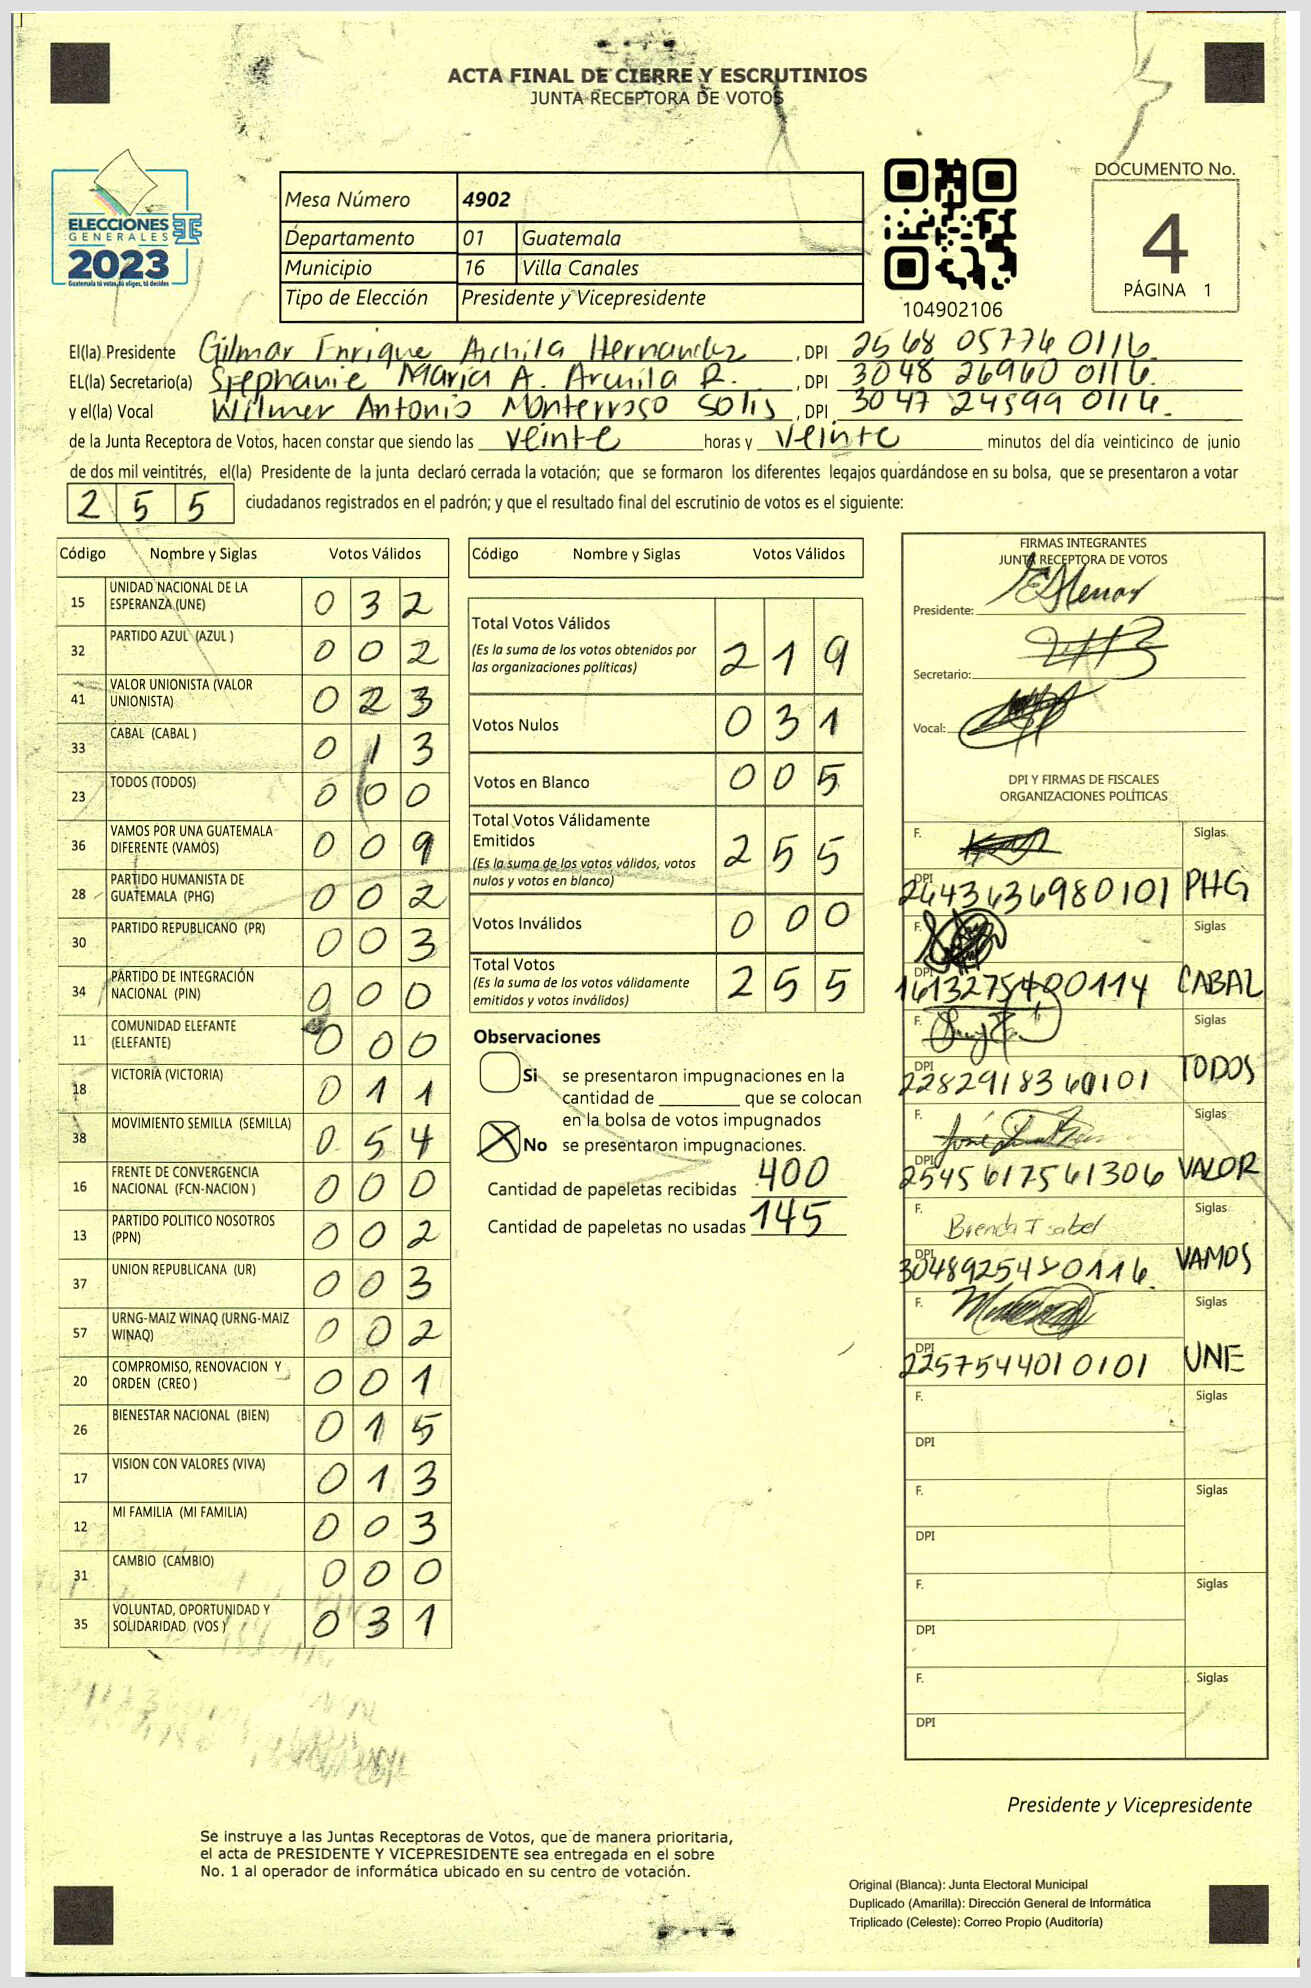 ACTA FINAL DE CIERRE Y ESCRUTINIOS
JUNTA RECEPTORA DE VOTOS
ELECCIONES
GENERALES
2023
Guatemala tú votas, tú eliges, tú decides
Mesa Número 4902
Departamento 01 Guatemala
Municipio 16 Villa Canales
Tipo de Elección Presidente y Vicepresidente
104902106
DOCUMENTO No.
4
PÁGINA 1
El(la) Presidente Gilmar Enrique Archila Hernandez, DPI 2568 05776 0116
EL(la) Secretario(a) Stephanie Maria A. Archila R., DPI 3048 26960 0116
y el(la) Vocal Wilmer Antonio Monterroso Solis, DPI 3047 24599 0116
de la Junta Receptora de Votos, hacen constar que siendo las veinte horas y veinte minutos del día veinticinco de junio
de dos mil veintitrés, el(la) Presidente de la junta declaró cerrada la votación; que se formaron los diferentes legajos guardándose en su bolsa, que se presentaron a votar
255 ciudadanos registrados en el padrón; y que el resultado final del escrutinio de votos es el siguiente:
Código Nombre y Siglas Votos Válidos
15 UNIDAD NACIONAL DE LA ESPERANZA (UNE) 0 3 2
32 PARTIDO AZUL (AZUL ) 0 0 2
41 VALOR UNIONISTA (VALOR UNIONISTA) 0 2 3
33 CABAL (CABAL ) 0 1 3
23 TODOS (TODOS) 0 0 0
36 VAMOS POR UNA GUATEMALA DIFERENTE (VAMOS) 0 0 9
28 PARTIDO HUMANISTA DE GUATEMALA (PHG) 0 0 2
30 PARTIDO REPUBLICANO (PR) 0 0 3
34 PARTIDO DE INTEGRACIÓN NACIONAL (PIN) 0 0 0
11 COMUNIDAD ELEFANTE (ELEFANTE) 0 0 0
18 VICTORIA (VICTORIA) 0 1 1
38 MOVIMIENTO SEMILLA (SEMILLA) 0 5 4
16 FRENTE DE CONVERGENCIA NACIONAL (FCN-NACION ) 0 0 0
13 PARTIDO POLITICO NOSOTROS (PPN) 0 0 2
37 UNION REPUBLICANA (UR) 0 0 3
57 URNG-MAIZ WINAQ (URNG-MAIZ WINAQ) 0 0 2
20 COMPROMISO, RENOVACION Y ORDEN (CREO ) 0 0 1
26 BIENESTAR NACIONAL (BIEN) 0 1 5
17 VISION CON VALORES (VIVA) 0 1 3
12 MI FAMILIA (MI FAMILIA) 0 0 3
31 CAMBIO (CAMBIO) 0 0 0
35 VOLUNTAD, OPORTUNIDAD Y SOLIDARIDAD (VOS ) 0 3 1
Código Nombre y Siglas Votos Válidos
Total Votos Válidos 2 1 9
(Es la suma de los votos obtenidos por
las organizaciones políticas)
Votos Nulos 0 3 1
Votos en Blanco 0 0 5
Total Votos Válidamente
Emitidos 2 5 5
(Es la suma de los votos válidos, votos
nulos y votos en blanco)
Votos Inválidos 0 0 0
Total Votos 2 5 5
(Es la suma de los votos válidamente
emitidos y votos inválidos)
Observaciones
Si se presentaron impugnaciones en la
cantidad de ________ que se colocan
en la bolsa de votos impugnados
X No se presentaron impugnaciones.
Cantidad de papeletas recibidas 400
Cantidad de papeletas no usadas 145
FIRMAS INTEGRANTES
JUNTA RECEPTORA DE VOTOS
Presidente:
Secretario:
Vocal:
DPI Y FIRMAS DE FISCALES
ORGANIZACIONES POLÍTICAS
F. Siglas
DPI 2443636980101 PHG
F. Siglas
DPI 1613275400114 CABAL
F. Siglas
DPI 2282918360101 TODOS
F. Siglas
DPI 2545617561306 VALOR
F. Brenda Isabel Siglas
DPI VAMOS
F. Siglas
DPI 2257544010101 UNE
F. Siglas
DPI
F. Siglas
DPI
F. Siglas
DPI
F. Siglas
DPI
Presidente y Vicepresidente
Se instruye a las Juntas Receptoras de Votos, que de manera prioritaria,
el acta de PRESIDENTE Y VICEPRESIDENTE sea entregada en el sobre
No. 1 al operador de informática ubicado en su centro de votación.
Original (Blanca): Junta Electoral Municipal
Duplicado (Amarilla): Dirección General de Informática
Triplicado (Celeste): Correo Propio (Auditoría)